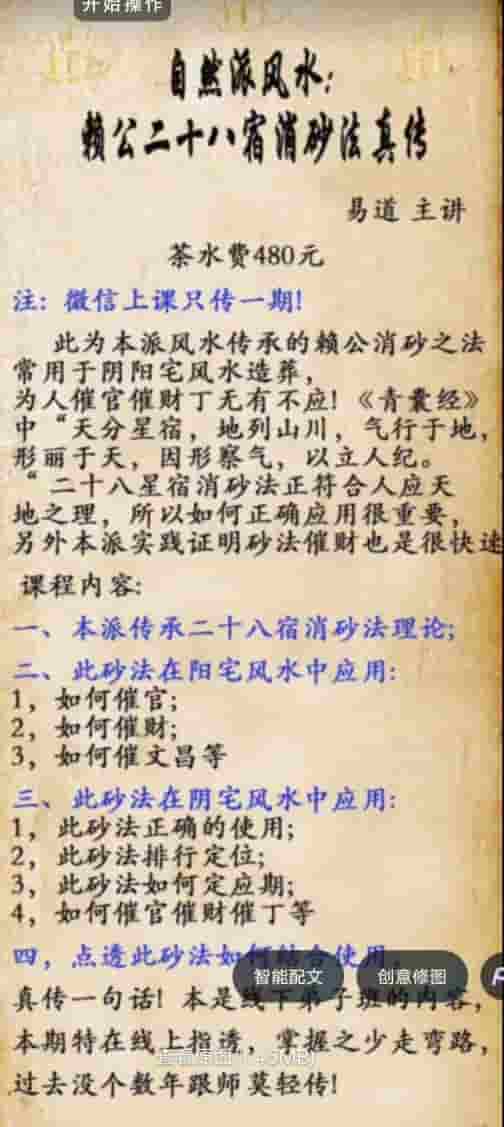 开始操作
自然派风水:
赖公二十八宿消砂法真传
易道 主讲
茶水费480元
注: 微信上课只传一期!
此为本派风水传承的赖公消砂之法
常用于阴阳宅风水造葬，
为人催官催财丁无有不应! 《青囊经》
中“天分星宿，地列山川，气行于地，
形丽于天，因形察气，以立人纪。
“ 二十八星宿消砂法正符合人应天
地之理，所以如何正确应用很重要，
另外本派实践证明砂法催财也是很快速
课程内容:
一、本派传承二十八宿消砂法理论;
二、此砂法在阳宅风水中应用:
1，如何催官;
2，如何催财;
3，如何催文昌等
三、此砂法在阴宅风水中应用:
1，此砂法正确的使用;
2，此砂法排行定位;
3，此砂法如何定应期;
4，如何催官催财催丁等
四，点透此砂法如何结合使用，
智能配文
创意修图
真传一句话! 本是线下弟子班的内容，
本期特在线上指透，掌握之少走弯路，
过去没个数年跟师莫轻传!